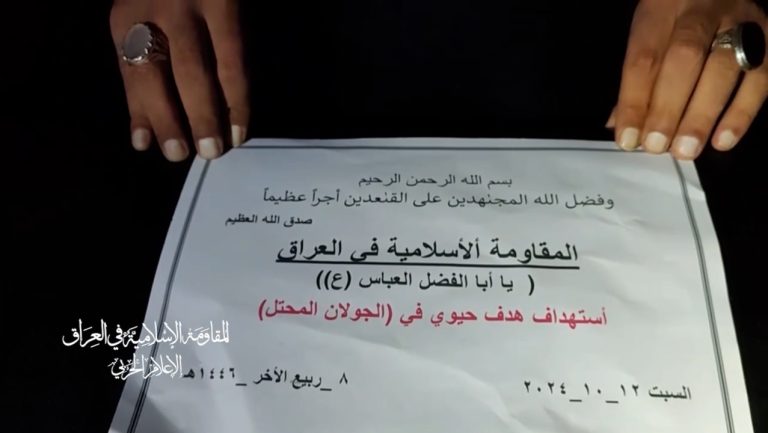 بسم الله الرحمن الرحيم
وفضل الله المجنهدين على القنعدين أجراً عظيماً
صدق الله العظيم
المقاومة ألأسلامية في العراق
( يا أبا الفضل العباس (ع))
أستهداف هدف حيوي في (الجولان المحتل)
السبت ١٢_١٠_٢٠٢٤
٨_ربيع الأخر_١٤٤٦هـ
المقاومة الإسلامية في العراق
الإعلام الحربي